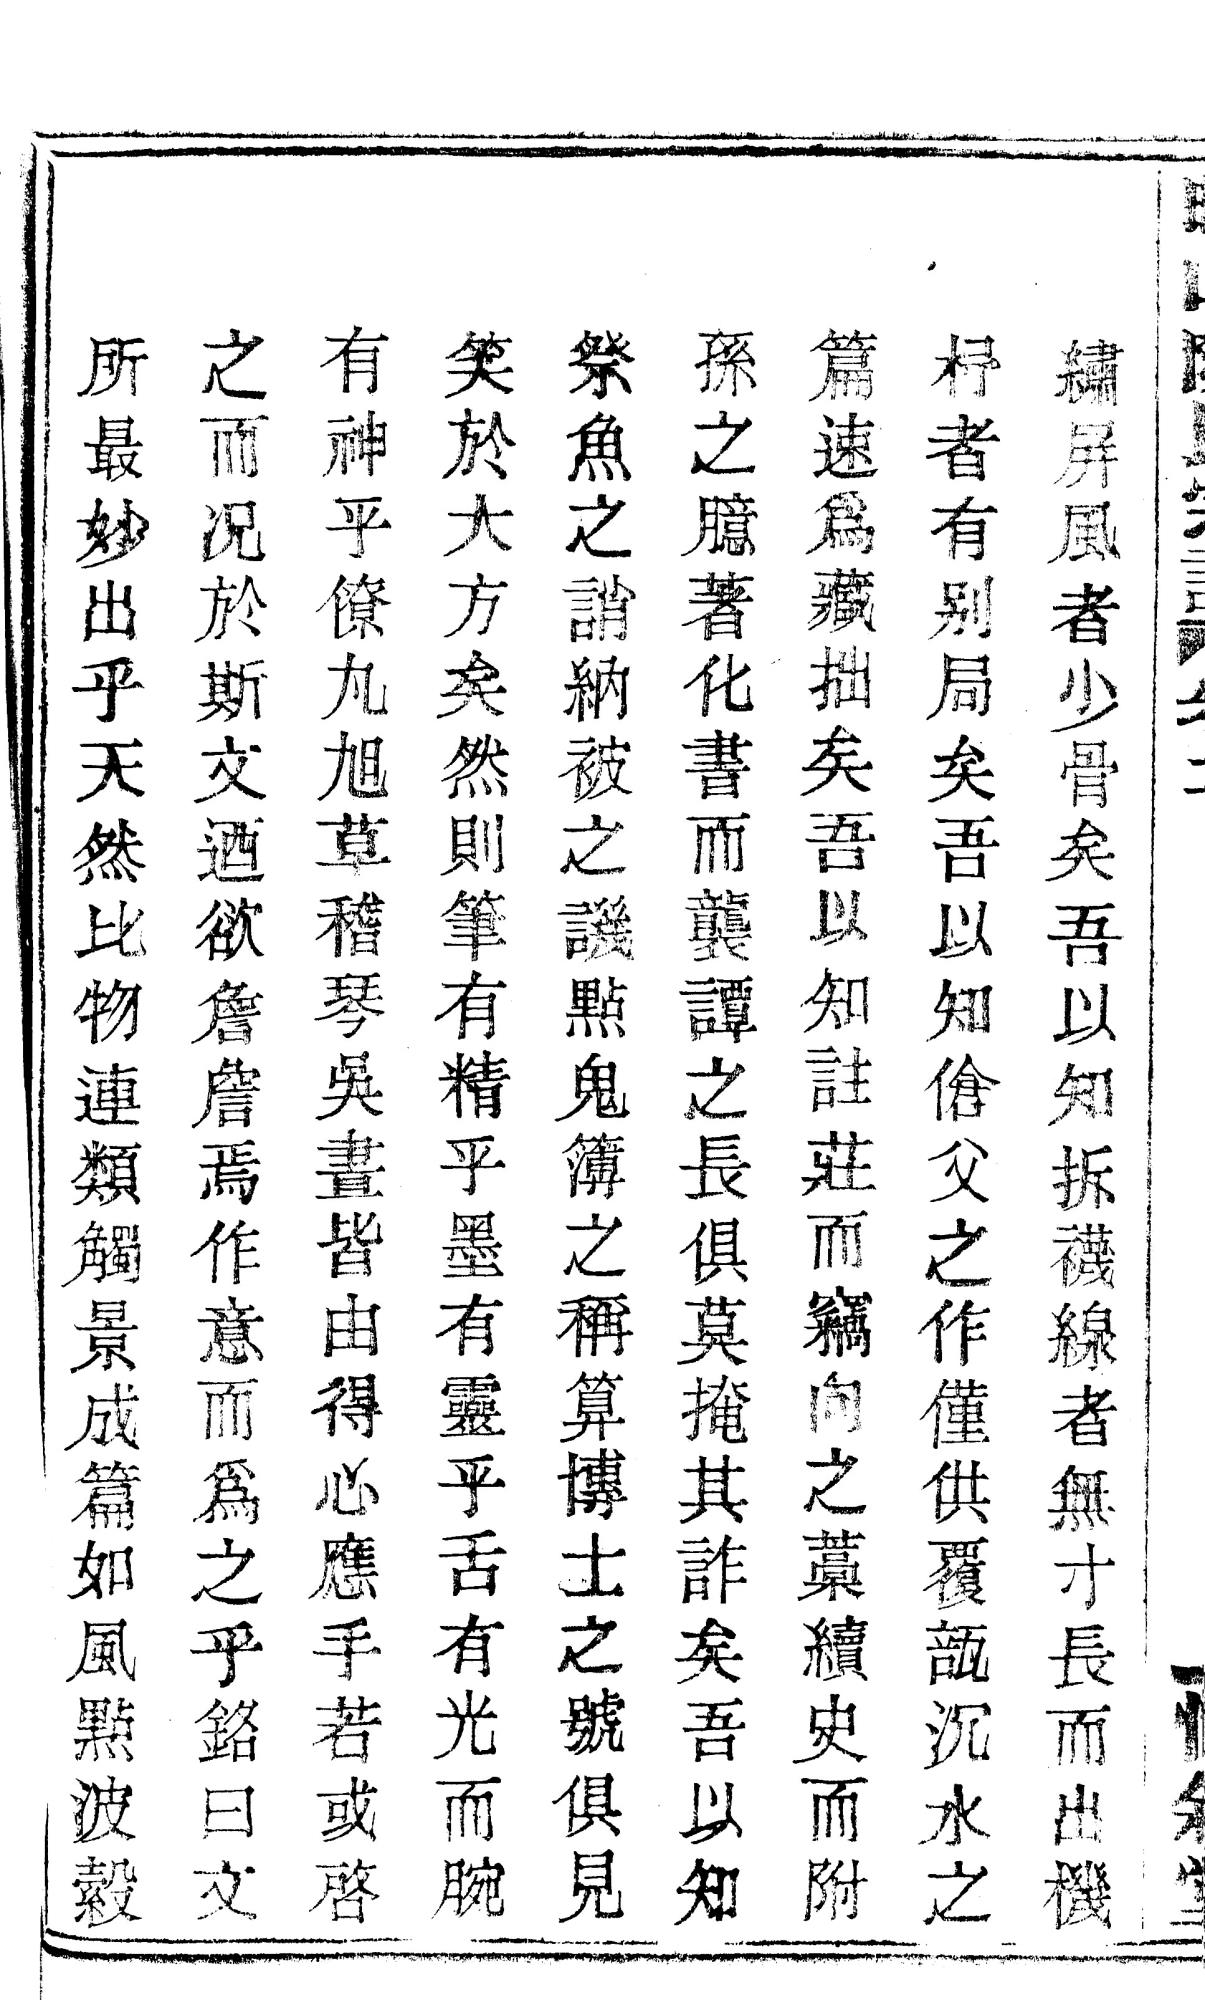 繡屏風者少骨矣吾以知拆襪線者無才長而出機
杼者有别局矣吾以知傖父之作僅供覆瓿沉水之
篇速爲藏拙矣吾以知註莊而竊向之藁續史而附
孫之臆著化書而襲譚之長俱莫掩其詐矣吾以知
祭魚之誚納被之譏點鬼簿之稱算博士之號俱見
笑於大方矣然則筆有精乎墨有靈乎舌有光而腕
有神乎僚丸旭草稽琴吳畫皆由得心應手若或啓
之而况於斯文迺欲詹詹焉作意而爲之乎銘曰文
所最妙出乎天然比物連類觸景成篇如風點波縠